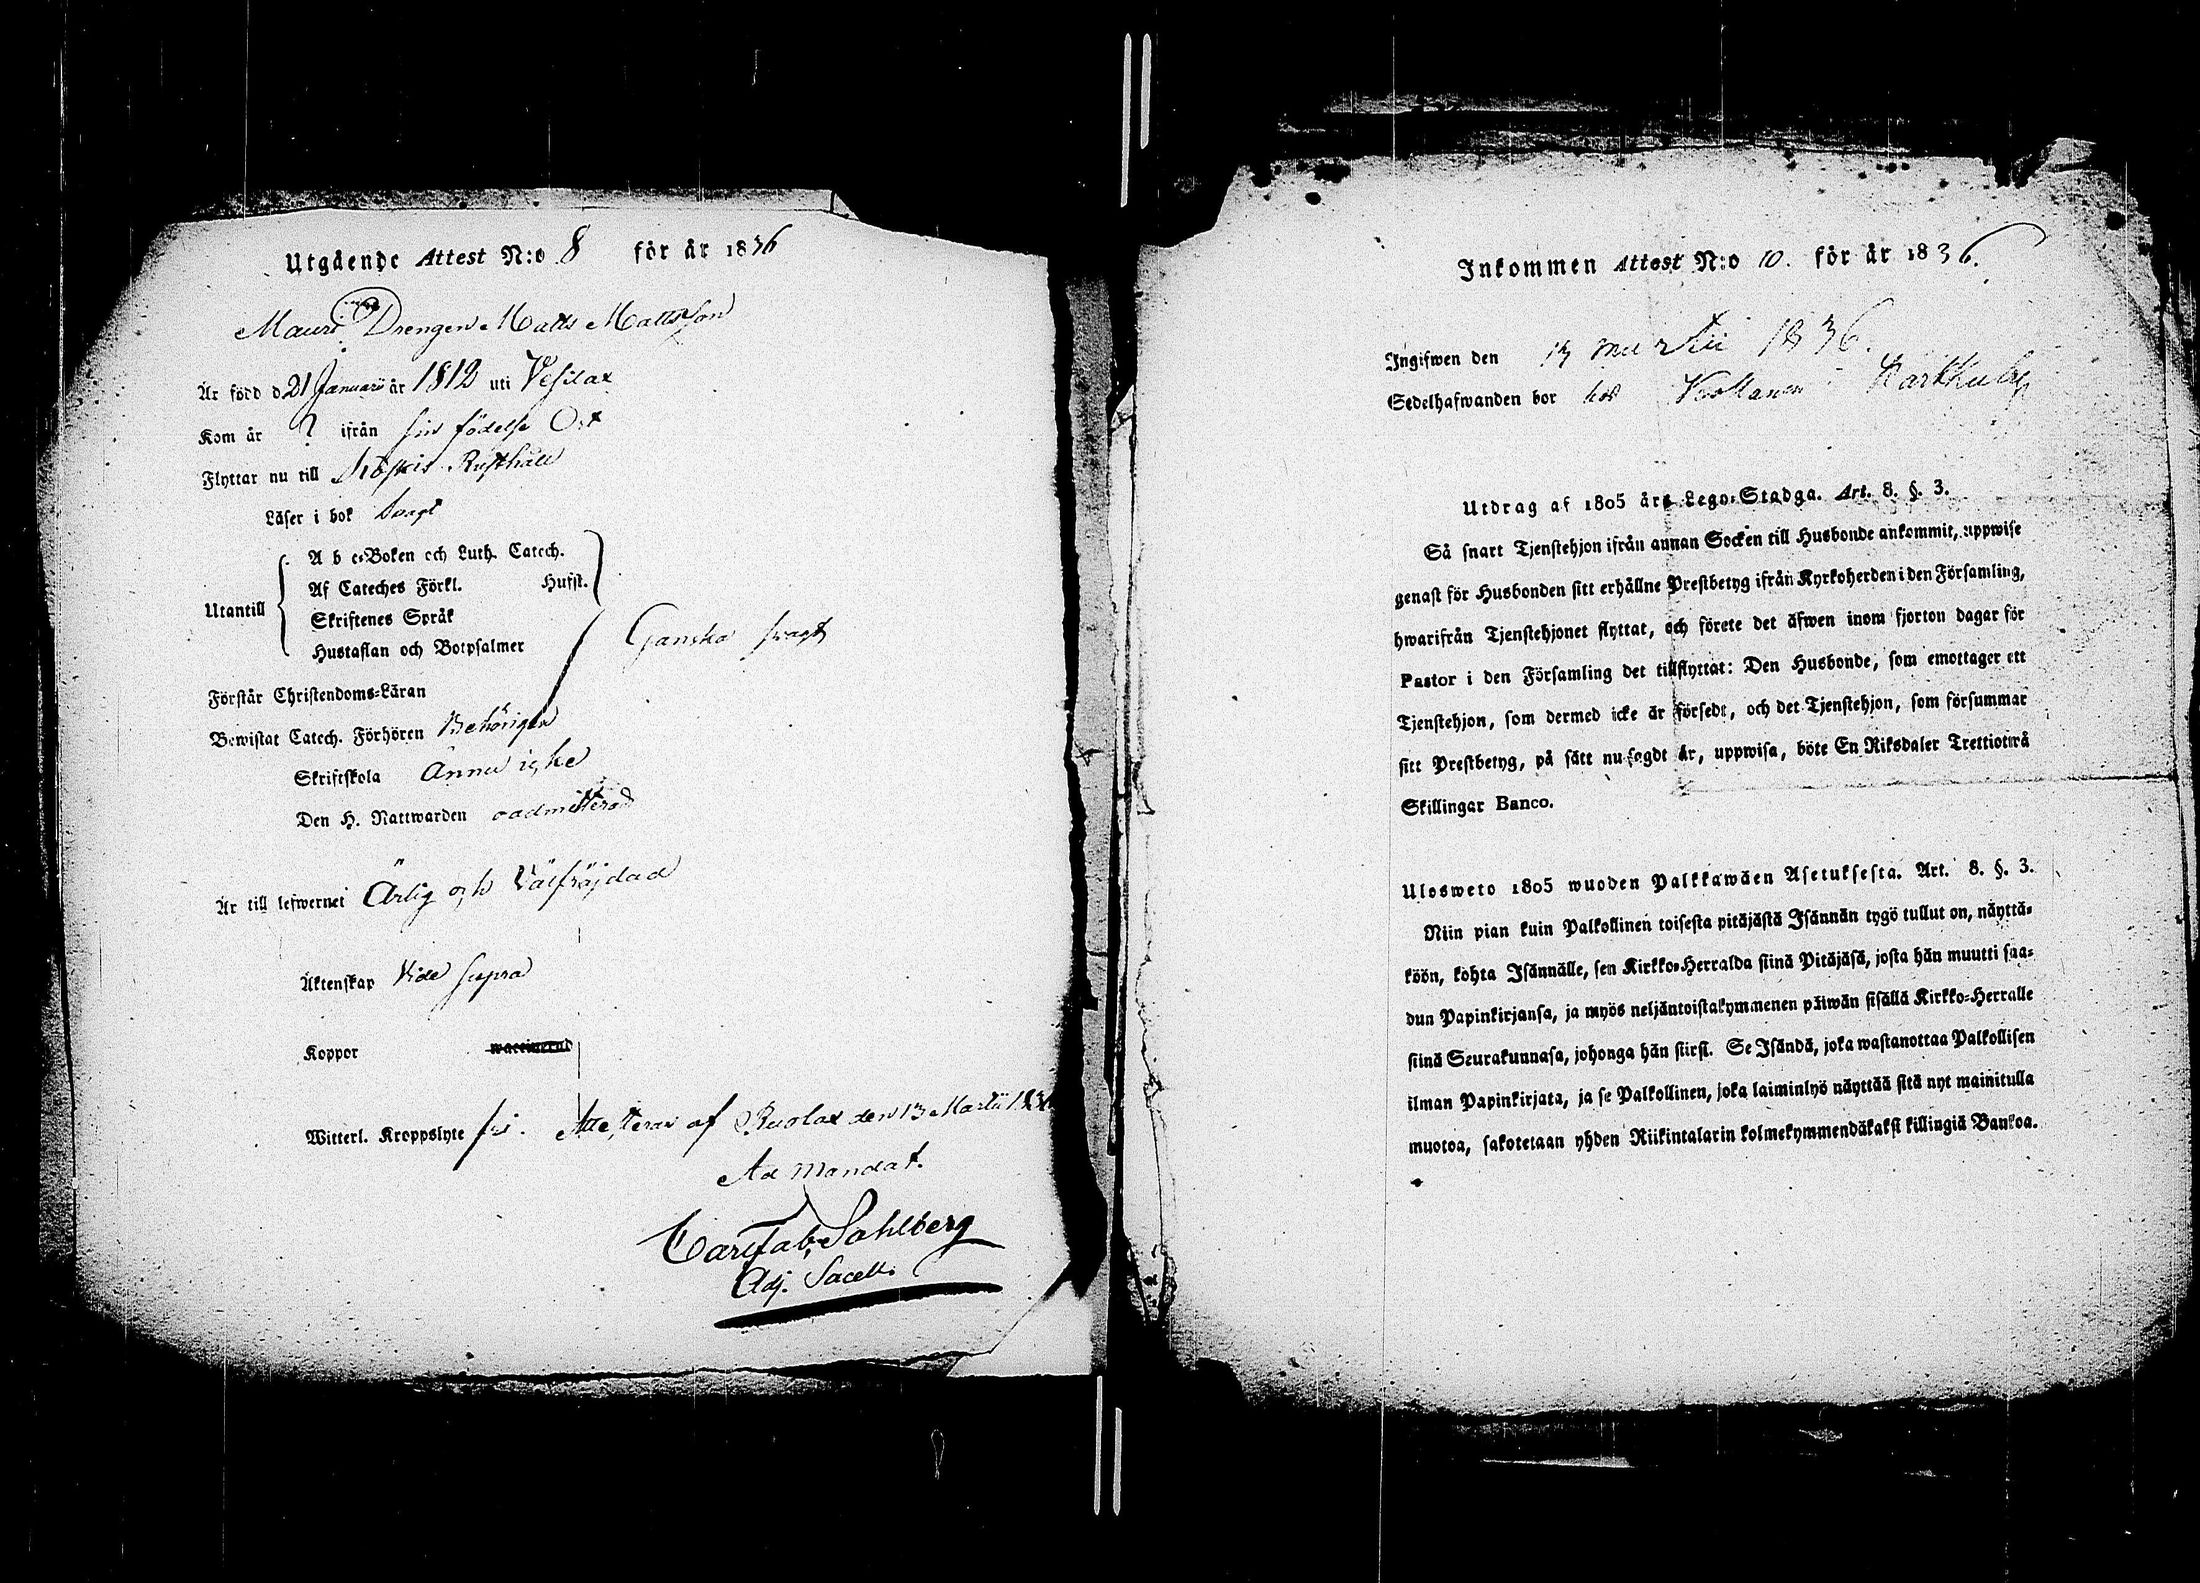 Utgående Attest N:o 8 för år 1836
Mauri Drengen Matts Mattsson
Är född d 21 Januarii år 1812 uti Vesilax
Kom år ? ifrån sin födelse Ort
Flyttar nu till Rusthåll
Läser i bok svagt
Utantill
A b c-Boken och Luth. Catech.
Af Cateches Förkl. Hufst.
Skriftenes Språk
Hustaflan och Botpsalmer
Ganska svagt
Förstår Christendoms-Läran
Bewistat Catech. Förhören Behörigen
Skriftskola Ännu icke
Den H. Nattwarden oadmitterad
Är till lefwernet Ärlig och Välfräjdad
Äktenskap Vide supra
Koppor waccinerad
Witterl. Kroppslyte fri. Attesteras af Ruolax den 13 Martii 1836
Ad Mandat.
Carl Fab. Sahlberg
Adj. Sacell.
Inkommen Attest N:o 10. för år 1836.
Ingifwen den martii 1836.
Sedelhafwanden bor hos
Utdrag af 1805 års Lego-Stadga. Art. 8. §. 3.
Så snart Tjenstehjon ifrån annan Socken till Husbonde ankommit, uppwise
genast för Husbonden sitt erhållne Prestbetyg ifrån Kyrkoherden i den Församling,
hwarifrån Tjenstehjonet flyttat, och förete det äfwen inom fjorton dagar för
Pastor i den Församling det tillflyttat: Den Husbonde, som emottager ett
Tjenstehjon, som dermed icke är försedt, och det Tjenstehjon, som försummar
sitt Prestbetyg, på sätt nu sagdt är, uppwisa, böte En Riksdaler Trettiotwå
Skillingar Banco.
Ulosweto 1805 wuoden Palkkawäen Asetuksesta. Art. 8. §. 3.
Niin pian kuin Palkollinen toisesta pitäjästä Isännän tygö tullut on, näyttä-
köön, kohta Isännälle, sen Kirkko-Herralda siinä Pitäjäsä, josta hän muutti saa-
dun Papinkirjansa, ja myös neljäntoistakymmenen päiwän sisällä Kirkko-Herralle
siinä Seurakunnasa, johonga hän siirsi. Se Isändä, joka wastanottaa Palkollisen
ilman Papinkirjata, ja se Palkollinen, joka laiminlyö näyttää sitä nyt mainitulla
muotoa, sakotetaan yhden Riikintalarin kolmekymmendäkaksi killingiä Bankoa.